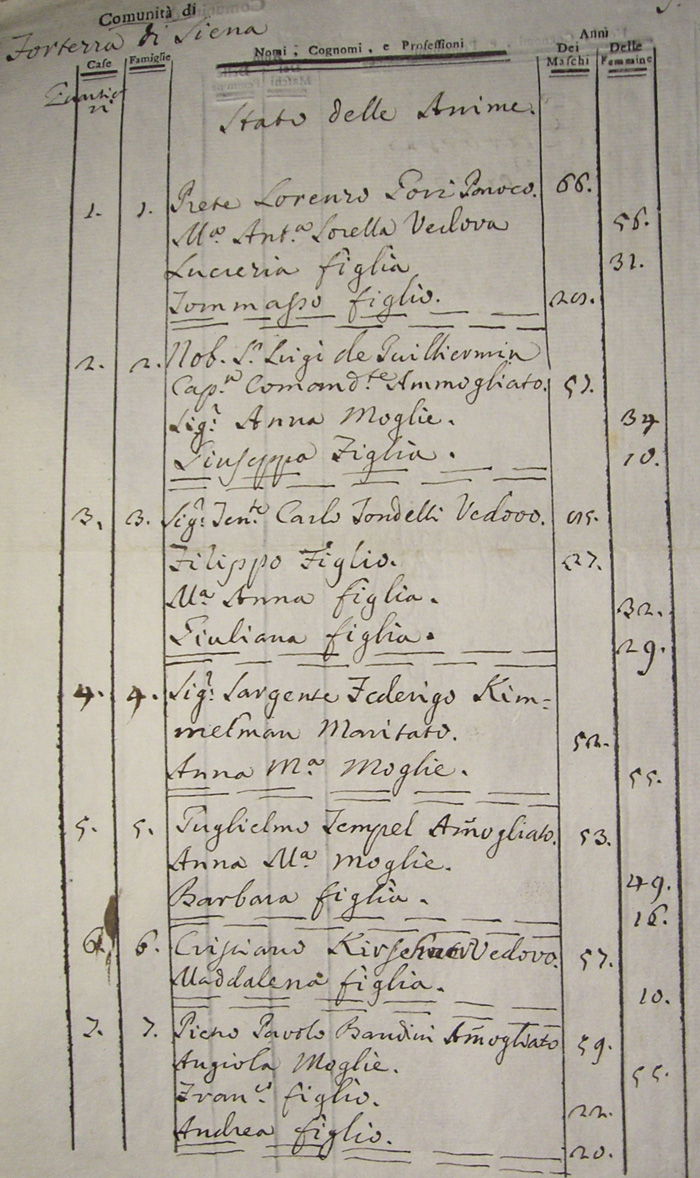 Comunità di
Forterra di Siena
Case Famiglie Nomi, Cognomi, e Professioni Anni Dei Maschi Delle Femmine
Quartieri
Stato delle Anime.
1. 1. Prete Lorenzo Gori Paroco. 66.
Mª Antª Sorella Vedova 56.
Lucrezia figlia 31.
Tommasso figlio. 20.
2. 2. Nob. Sr Luigi de Guillermin
Capn Comandte Ammogliato. 57.
Sigr Anna Moglie. 34
Giuseppa Figlia. 10.
3. 3. Sigr Tente Carlo Tondelli Vedovo.
Filippo Figlio. 27.
Mª Anna figlia. 32.
Giuliana figlia. 29.
4. 4. Sigr Sargente Federigo Kim=
melman Maritato. 52.
Anna Mª Moglie. 55.
5. 5. Guglielmo Tempel Am̃ogliato. 53.
Anna Mª moglie. 49.
Barbara figlia. 16.
6. 6. Cristiano Vedovo. 57.
Maddalena figlia. 10.
7. 7. Pietro Pavolo Bandini Am̃ogliato 59.
Angiola Moglie. 55.
Franco figlio. 22.
Andrea figlio. 20.